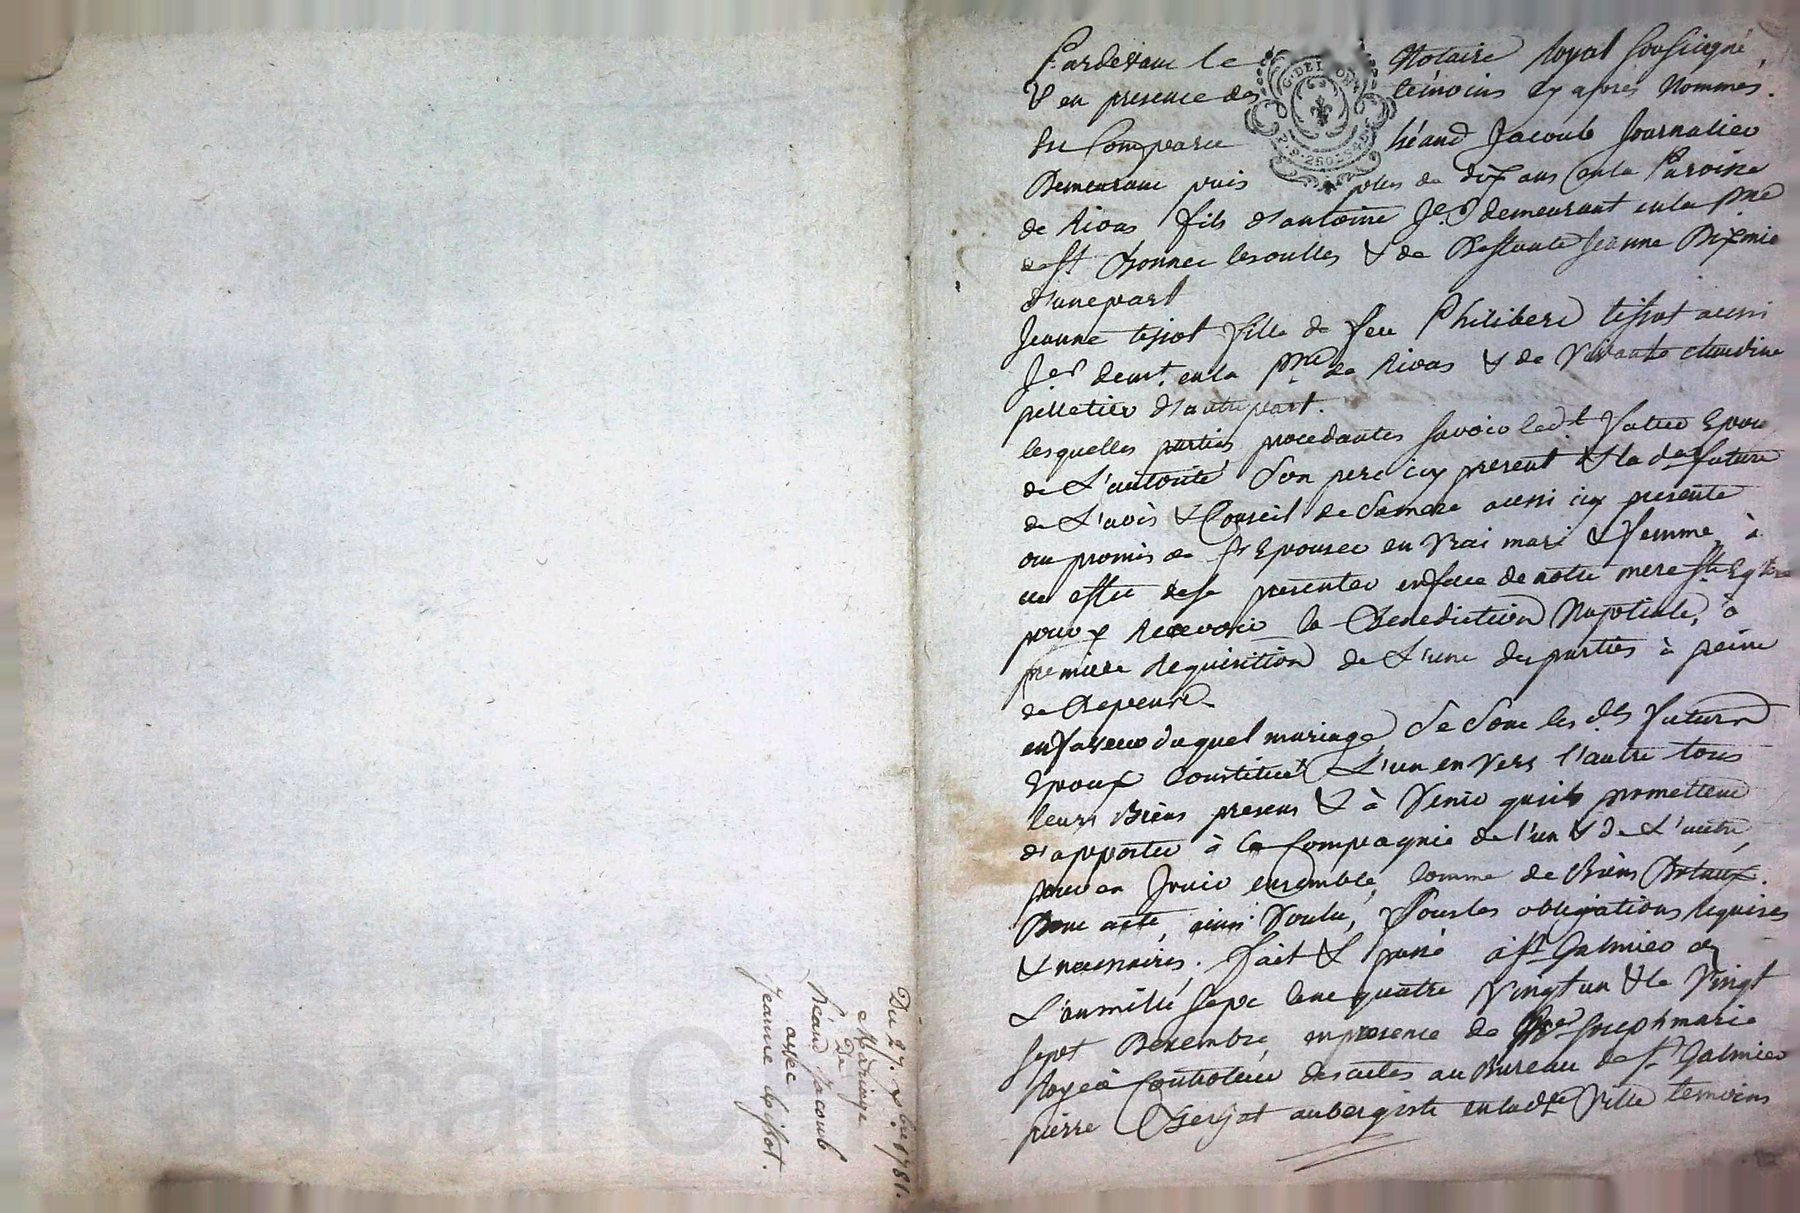 Du 27. xbre 1781.
Mariage
De
Réand Jacoub
avec
Jeanne tissot.
Pardevant le Notaire Royal soussigné,
& en presence des témoins cy après Nommés.
Est Comparu Réand Jacoub Journalier
Demeurant puis plus de dix ans en la Paroisse
de Rivas fils d'antoine Jer demeurant en la pnne
de st Bonnet lesoulles & de Deffunte Jeanne
d'une part
Jeanne tissot fille de feu Philibert tissot aussi
Jer demt. en la de Rivas & de Vivante claudine
pelletier d'autre part.
lesquelles parties procedantes savoir ledt futur Epoux
de L'autorité Son pere icy present & la de future
de L'avis & Conseil de Sa mere aussi icy presente
ont promis de Sr Epouser en Vrai mari & femme, à
cet effet de se presenter en face de notre mere ste Eglise
pour y Recevoir la Benediction Nuptiale, à
premiere Requisition de L'une des parties à peine
de Depens
en faveur duquel mariage Se Sont les dts futurs
Epoux Constitués L'un en Vers l'autre tous
leurs Biens presens & à Venir qu'ils promettent
d'apporter à la Compagnie de l'un & de L'autre,
pour en Jouir ensemble, comme de Biens Dotaux.
Dont acte, ainsi Voulu, Sous les obligations Requises
& necessaires. fait & passé à st Galmier
L'an mille sept Cent quatre Vingt un & le Vingt
sept Decembre, en presence de Joseph marie
Controleur des actes au Bureau de st Galmier
pierre aubergiste en ladte Ville temoins
G. DE LYON